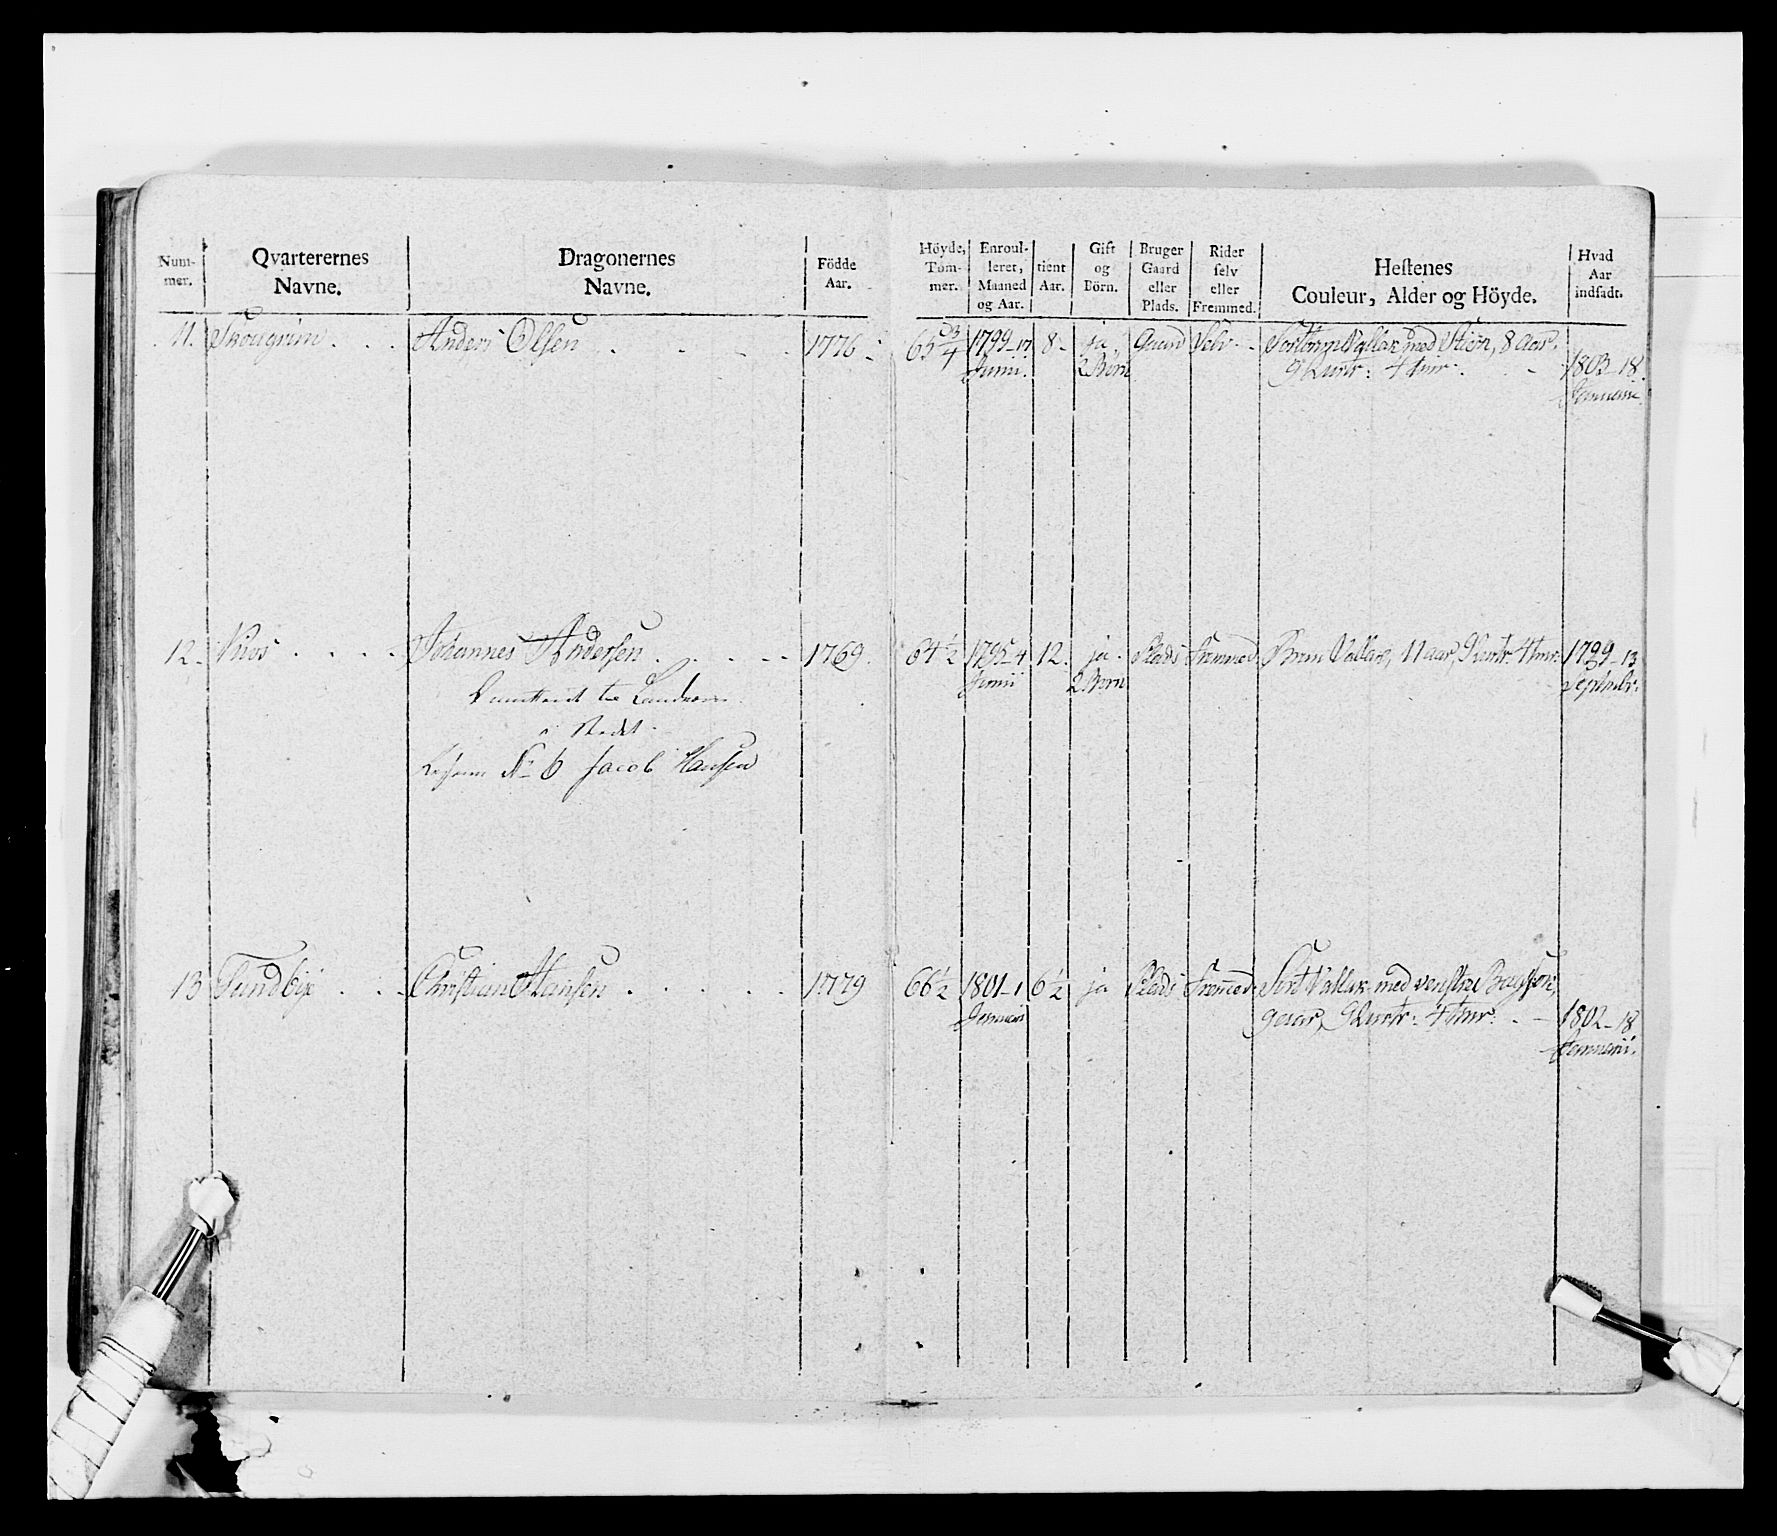 Num-
mer.
Qvarterernes
Navne.
Dragonernes
Navne.
Födde
Aar.
Höyde,
Tom-
mer.
Enroul-
leret,
Maaned
og Aar.
tient
Aar.
Gift
og
Börn.
Bruger
Gaard
eller
Plads.
Rider
selv
eller
Fremmed.
Hestenes
Couleur, Alder og Höyde.
Hvad
Aar
indsadt.
11. Skougrim Anders Olsen 1776 65 3/4 1799 - 17 8 ja Gaard Selv Vallak med Stiern, 8 Aar,
Junii. 2 Börn 9 Qvartr: 4 tmr. 1803 - 18
Januarii
12 Johannes Andersen 1769 64 1/2 1795 - 4 12. ja Plads Fremmed Brun Vallak, 11 aar, 9 Qvartr: 4 tmr: 1799 - 13
Junii 2 Börn Septembr:
til Landværn
No 6 Jacob Hansen
13 Sundbye Christian Hansen 1779 66 1/2 1801 - 1 6 1/2 ja Plads Fremmed Sort Vallak med venstre
Januari 9 aar, 9 Qvartr: 4 tmr: 1802 - 18
Januarii.